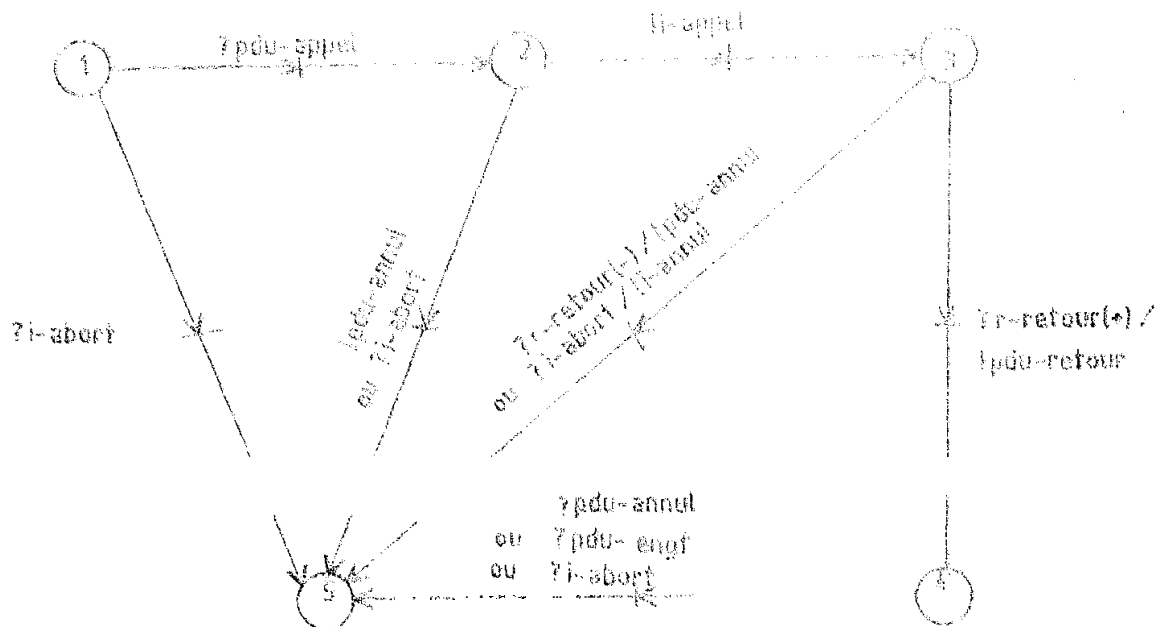 1
?pdu-appel
2
!i-appel
3
?i-abort
!pdu-annul
ou ?i-abort
?r-retour(-)/!pdu-annul
ou ?i-abort/!i-annul
?r-retour(+)/
!pdu-retour
?pdu-annul
ou ?pdu-engt
ou ?i-abort
5
4